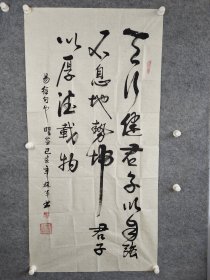 天行健君子以自强
不息地势坤君子
以厚德载物
易经句
己亥年
书